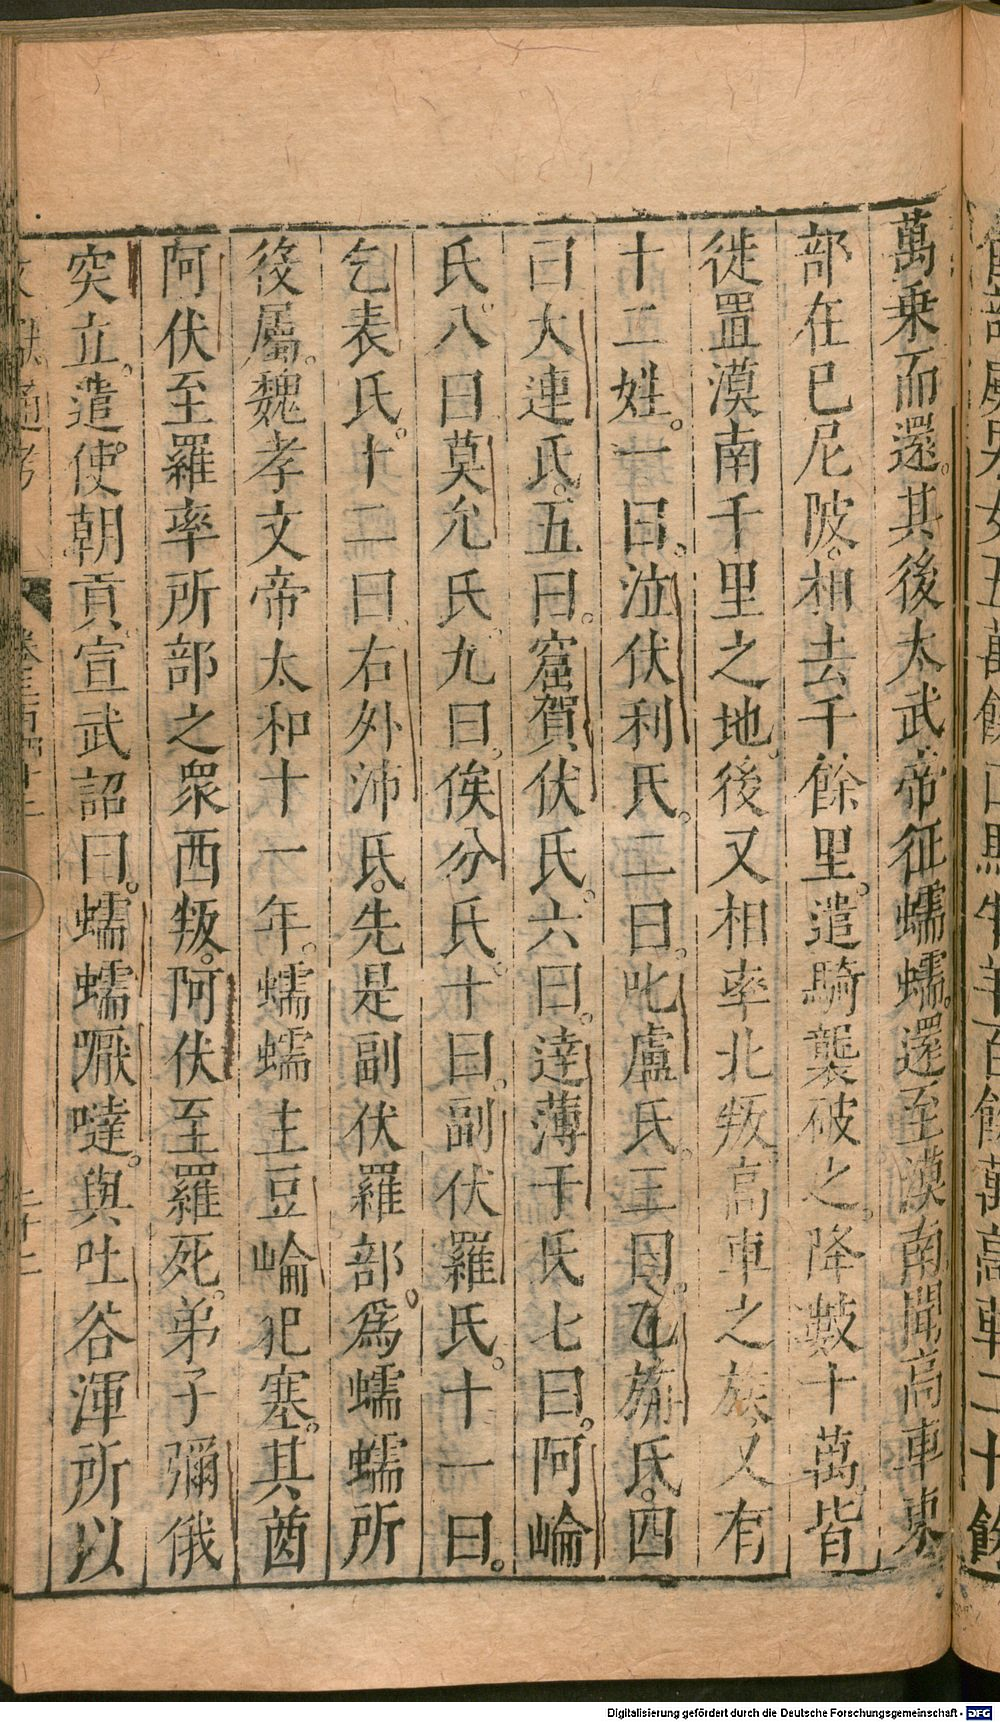 萬乗而還。其後太武帝征蠕蠕。還至漠南聞高車東
部在巳尼陂。相去千餘里。遣騎襲破之。降數十萬。皆
徙置漠南千里之地。後又相率北叛。高車之族又有
十二姓。一曰。泣伏利氏。二曰。叱盧氏。三曰。乙旃氏。四
曰大連氏。五曰。窟賀伏氏。六曰。達薄于氏七曰。阿崘
氏。八曰莫允氏。九曰。俟分氏。十曰。副伏羅氏。十一曰。
乞表氏。十二曰右外沛氏。先是副伏羅部。爲蠕蠕所
役屬。魏孝文帝太和十一年。蠕蠕主豆崘犯塞。其酋
阿伏至羅率所部之衆西叛。阿伏至羅死。弟子彌俄
突立。遣使。朝貢。宣武詔曰。蠕蠕厭噠。與吐谷渾所以
文獻通考 卷三百四十二
Digitalisierung gefördert durch die Deutsche Forschungsgemeinschaft - DFG